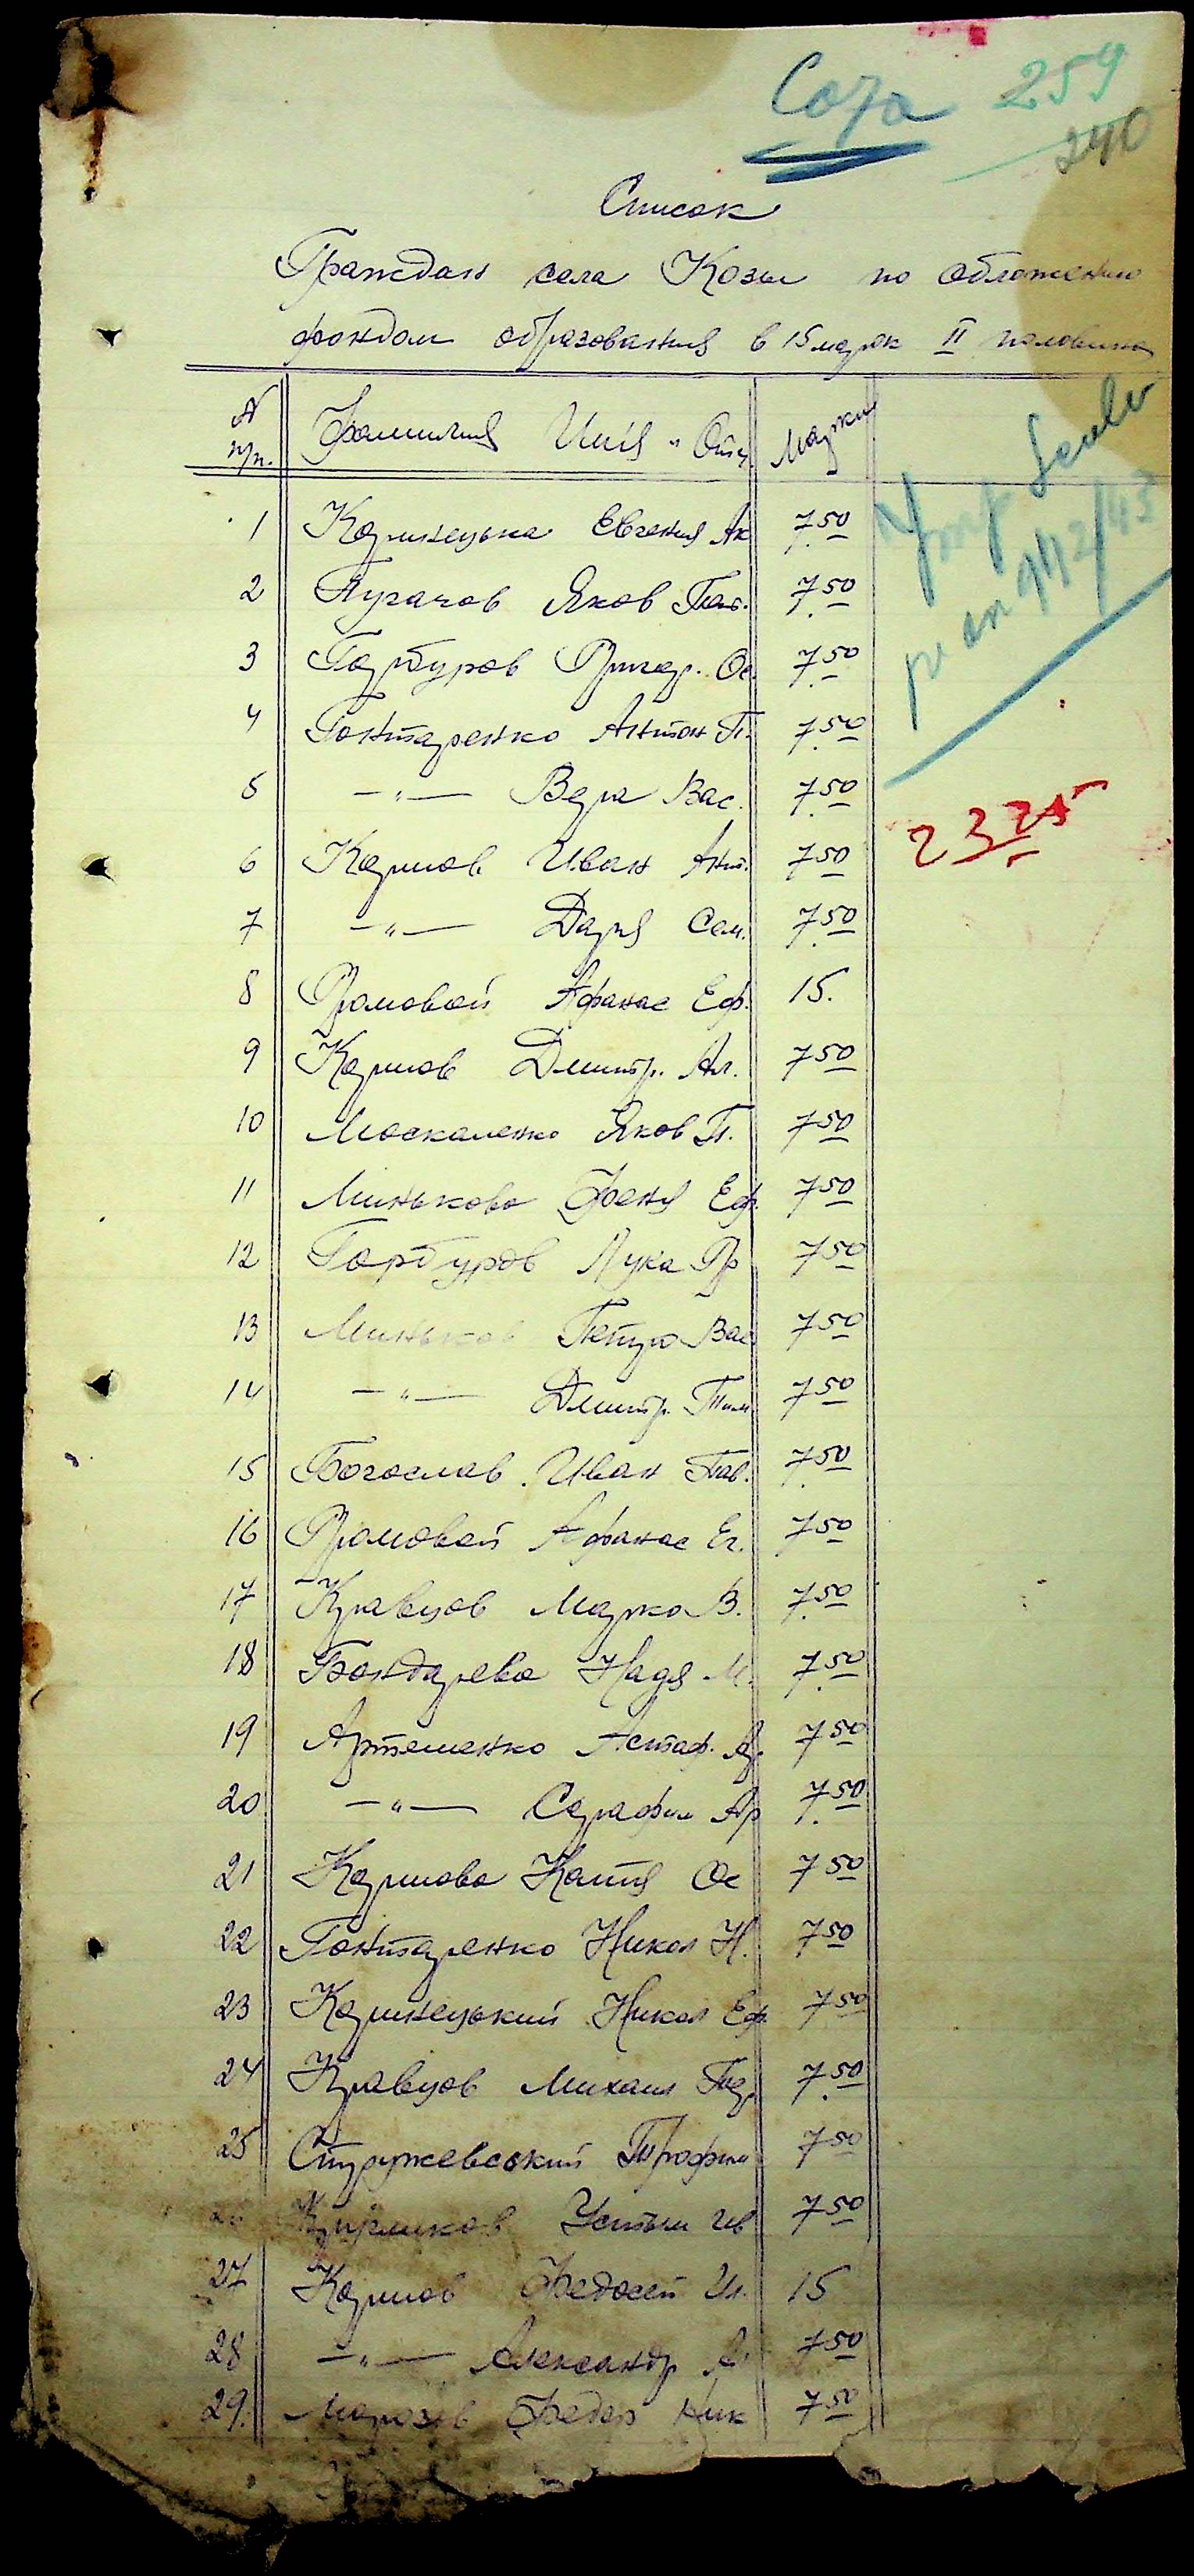 Соза 259
240
Список
Граждан села Козы по обложению
фондом образования в 15 марок II половина
№ п/п. Фамилия Имя и Отч. Марки
1 Кермнецька Евгения Ак 7.50
2 Пугачов Яков Пав. 7.50
3 Гарбуров Григор. Ос 7.50
4 Гонтаренко Антон П. 7.50
5 —"— Вера Вас. 7.50
6 Карпов Иван Ант. 7.50
7 —"— Даря Сем. 7.50
8 Громовой Афанас Еф. 15.
9 Карпов Дмитр. Ал. 7.50
10 Москаленко Яков П. 7.50
11 Минькова Феня Еф. 7.50
12 Горбуров Лука Гр 7.50
13 Миньков Петро Вас 7.50
14 —"— Дмитр. Тим. 7.50
15 Богослав. Иван Пав. 7.50
16 Громовой Афанас Ег. 7.50
17 Кравцов Марко В. 7.50
18 Бондарева Надя М. 7.50
19 Артеменко Астаф. 7.50
20 —"— Серафим Ар 7.50
21 Карпова Катя Ос 7.50
22 Гонтаренко Никол Н. 7.50
23 Никол Еф. 7.50
24 Кравцов Михаил 7.50
25 Стружевський Трофим 7.50
Устим Ив 7.50
27 Карпов Федосей Ил. 15
28 —"— Александр А. 7.50
29. Морозов Федор Ник 7.50
pe an 942/43
23 25